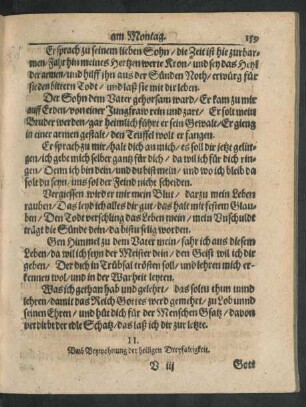 am Montag. 159
Er sprach zu seinem lieben Sohn / die Zeit ist hie zurbar-
men / Fahr hin meines Hertzen werte Kron / und sey das Heyl
der armen / und hilff ihn aus der Sünden Noth / erwürg für
sie den bittern Todt / und laß sie mit dir leben.
Der Sohn dem Vater gehorsam ward / Er kam zu mir
auff Erden / von einer Jungfraw rein und zart / Er solt mein
Bruder werden / gar heimlich führet er sein Gewalt / Er gieng
in einer armen gestalt / den Teuffel wolt er fangen.
Er sprach zu mir / halt dich an mich / es soll dir jetzt gelin-
gen / ich gebe mich selber gantz für dich / da wil ich für dich rin-
gen / Denn ich bin dein / und du bist mein / und wo ich bleib da
solt du seyn / uns sol der Feind nicht scheiden.
Vergiessen wird er mir mein Blut / darzu mein Leben
rauben / Das leyd ich alles dir gut / das halt mit festem Glau-
ben / Den Todt verschling das Leben mein / mein Unschuldt
trägt die Sünde dein / da bistu selig worden.
Gen Himmel zu dem Vater mein / fahr ich aus diesem
Leben / da wil ich seyn der Meister dein / den Geist wil ich dir
geben / Der dich in Trübsal trösten soll / und lehren mich er-
kennen wol / und in der Warheit leyten.
Was ich gethan hab und gelehrt / das solen thun unnd
lehren / damit das Reich Gottes werd gemehrt / zu Lob unnd
seinen Ehren / und hüt dich für der Menschen Gsatz / davon
verdirbt der edle Schatz / das laß ich dir zur letzte.
11.
Umb Beywohnung der heiligen Dreyfaltigkeit.
V iij Gott